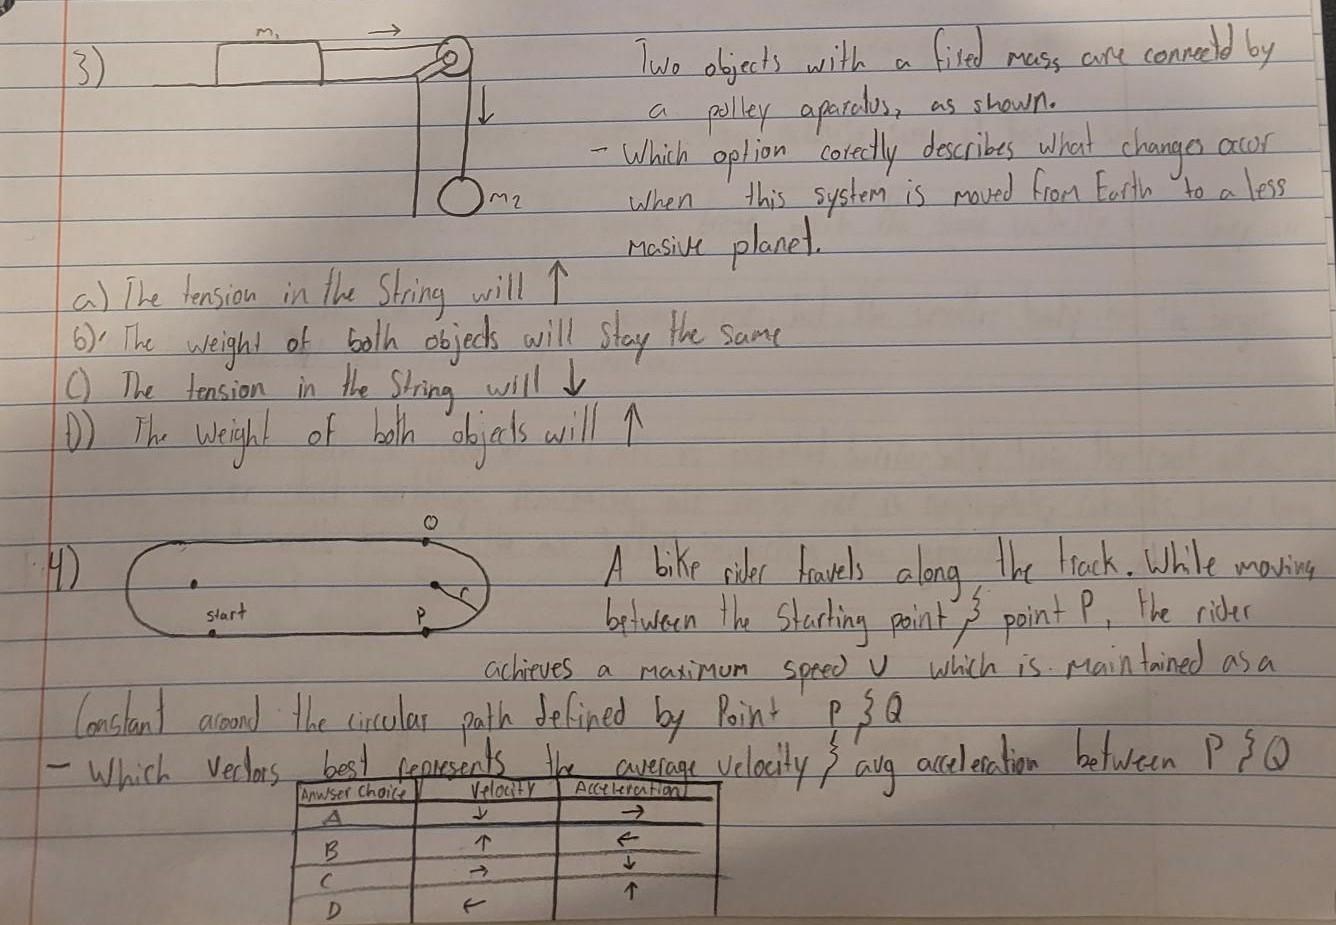 3)
m1
Two objects with a fixed mass are connectd by
a polley aparatus, as shown.
- Which option corectly describes what changes occur
m2
when this system is moved from Earth to a less
masive planet.
a) The tension in the String will ↑
b) The weight of both objects will stay the same
C) The tension in the String will ↓
D) The Weight of both objects will ↑
4)
Q
start
P
r
A bike rider travels along the track. While moving
between the starting point & point P, the rider
achieves a maximum speed v which is maintained as a
Constant around the circular path defined by Point P & Q
- Which vectors best represents the average velocity & avg acceleration between P & Q
Anwser choice Velocity Acceleration
A ↓ →
B ↑ ←
C → ↓
D ← ↑